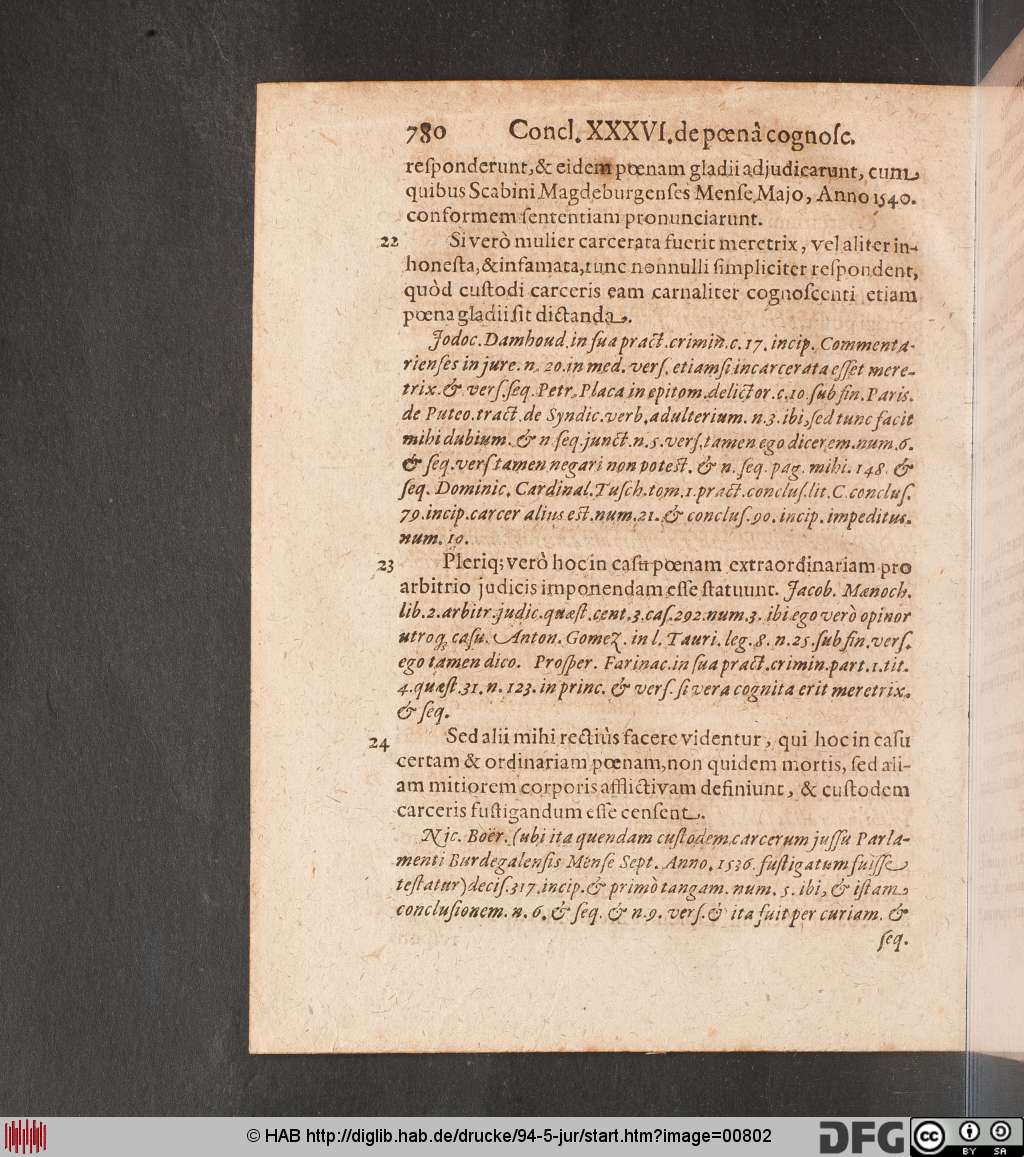 780 Concl. XXXVI. de pœnâ cognosc.
responderunt, & eidem pœnam gladii adjudicarunt, cum
quibus Scabini Magdeburgenses Mense Majo, Anno 1540.
conformem sententiam pronunciarunt.
22 Si verò mulier carcerata fuerit meretrix, vel aliter in-
honesta, & infamata, tunc nonnulli simpliciter respondent,
quòd custodi carceris eam carnaliter cognoscenti etiam
pœna gladii sit dictanda.
Jodoc. Damhoud. in sua pract. crimin. c. 17. incip. Commenta-
rienses in jure. n. 20. in med. vers. etiamsi incarcerata esset mere-
trix. & vers. seq. Petr. Placa in epitom. delictor. c. 10. sub fin. Paris.
de Puteo. tract. de Syndic. verb. adulterium. n. 3. ibi, sed tunc facit
mihi dubium. & n. seq. junct. n. 5. vers. tamen ego dicerem. num. 6.
& seq. vers tamen negari non potest. & n. seq. pag. mihi. 148. &
seq. Dominic. Cardinal. Tusch. tom. 1. pract. conclus. lit. C. conclus.
79. incip. carcer alius est. num. 21. & conclus. 90. incip. impeditus.
num. 10.
23 Pleriq; verò hoc in casu pœnam extraordinariam pro
arbitrio judicis imponendam esse statuunt. Jacob. Mænoch.
lib. 2. arbitr. judic. quæst. cent. 3. cas. 292. num. 3. ibi ego verò opinor
utroq; casu. Anton. Gomez. in l. Tauri. leg. 8. n. 25. sub fin. vers.
ego tamen dico. Prosper. Farinac. in sua pract. crimin. part. 1. tit.
4. quæst. 31. n. 123. in princ. & vers. si vera cognita erit meretrix.
& seq.
24 Sed alii mihi rectiùs facere videntur, qui hoc in casu
certam & ordinariam pœnam, non quidem mortis, sed ali-
am mitiorem corporis afflictivam definiunt, & custodem
carceris fustigandum esse censent.
Nic. Boër. (ubi ita quendam custodem carcerum jussu Parla-
menti Burdegalensis Mense Sept. Anno. 1536. fustigatum fuisse
testatur) decis. 317. incip. & primò tangam. num. 5. ibi, & istam
conclusionem. n. 6. & seq. & n. 9. vers. & ita fuit per curiam. &
seq.
© HAB http://diglib.hab.de/drucke/94-5-jur/start.htm?image=00802
DFG
cc BY SA